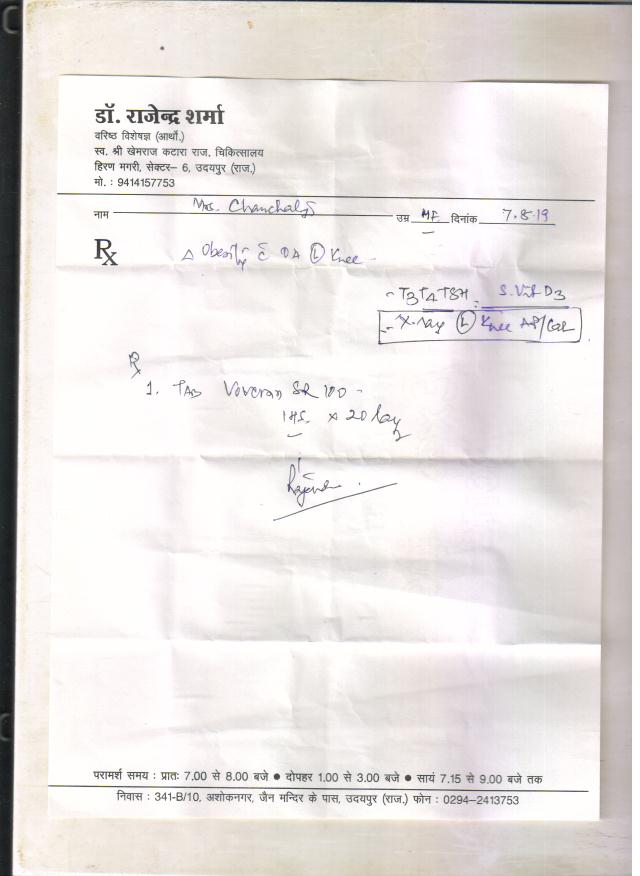 डॉ. राजेन्द्र शर्मा
वरिष्ठ विशेषज्ञ (आर्थो.)
स्व. श्री खेमराज कटारा राज. चिकित्सालय
हिरण मगरी, सेक्टर– 6, उदयपुर (राज.)
मो. : 9414157753
नाम Mrs. Chanchal उम्र दिनांक 7.8.19
Rx
△ Obesity c̄ OA Ⓛ Knee -
- T3 T4 TSH, S. Vit D3
- X-ray Ⓛ Knee AP/Lat
Rx
1. TAB Voveran SR 100 -
1 HS. x 20 day
परामर्श समय : प्रातः 7.00 से 8.00 बजे ● दोपहर 1.00 से 3.00 बजे ● सायं 7.15 से 9.00 बजे तक
निवास : 341-B/10, अशोकनगर, जैन मन्दिर के पास, उदयपुर (राज.) फोन : 0294-2413753